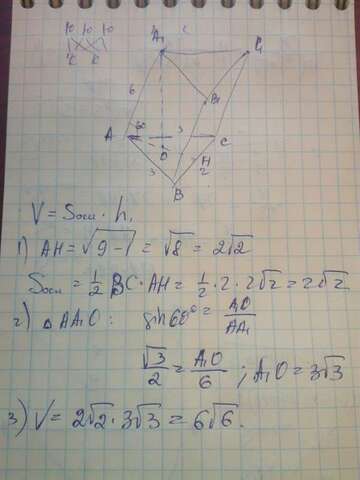 10 10 10
A₁ C₁
6 B₁
A 60° 3 C
O H
3 2
B
V = Sосн · h,
1) AH = √9-1 = √8 = 2√2
Sосн = 1/2 BC · AH = 1/2 · 2 · 2√2 = 2√2
2) △ AA₁O : sin 60° = A₁O/AA₁
√3/2 = A₁O/6 ; A₁O = 3√3
3) V = 2√2 · 3√3 = 6√6.